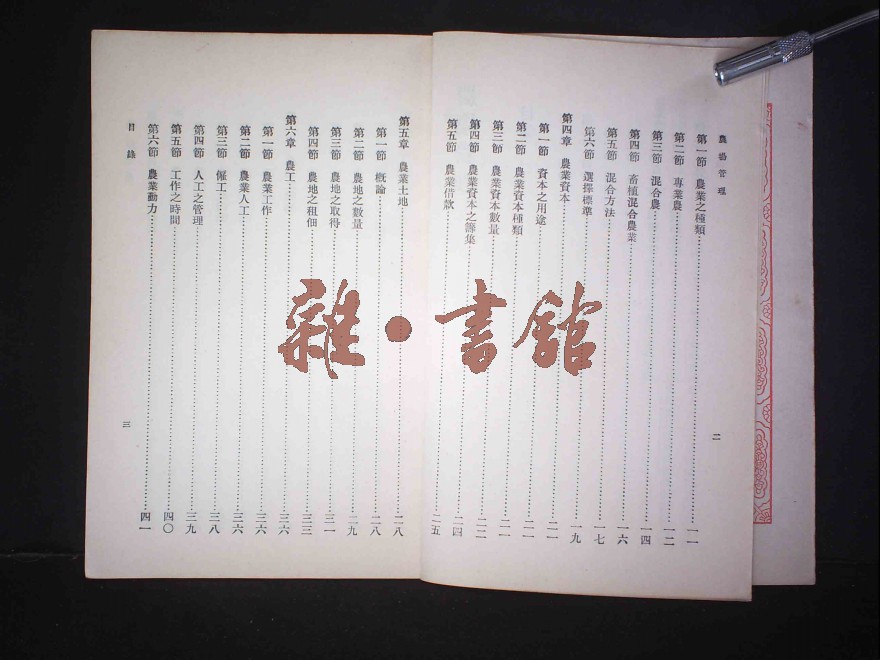 農場管理
第一節 農業之種類 一一
第二節 專業農 一二
第三節 混合農 一四
第四節 畜植混合農業 一六
第五節 混合方法 一七
第六節 選擇標準 一九
第四章 農業資本 二一
第一節 資本之用途 二一
第二節 農業資本種類 二一
第三節 農業資本數量 二一
第四節 農業資本之籌集 二四
第五節 農業借款 二五
二
第五章 農業土地 二八
第一節 概論 二八
第二節 農地之數量 二九
第三節 農地之取得 三一
第四節 農地之租佃 三三
第六章 農工 三六
第一節 農業工作 三六
第二節 農業人工 三六
第三節 僱工 三八
第四節 人工之管理 三九
第五節 工作之時間 四〇
第六節 農業動力 四一
目錄
三
雜·書館